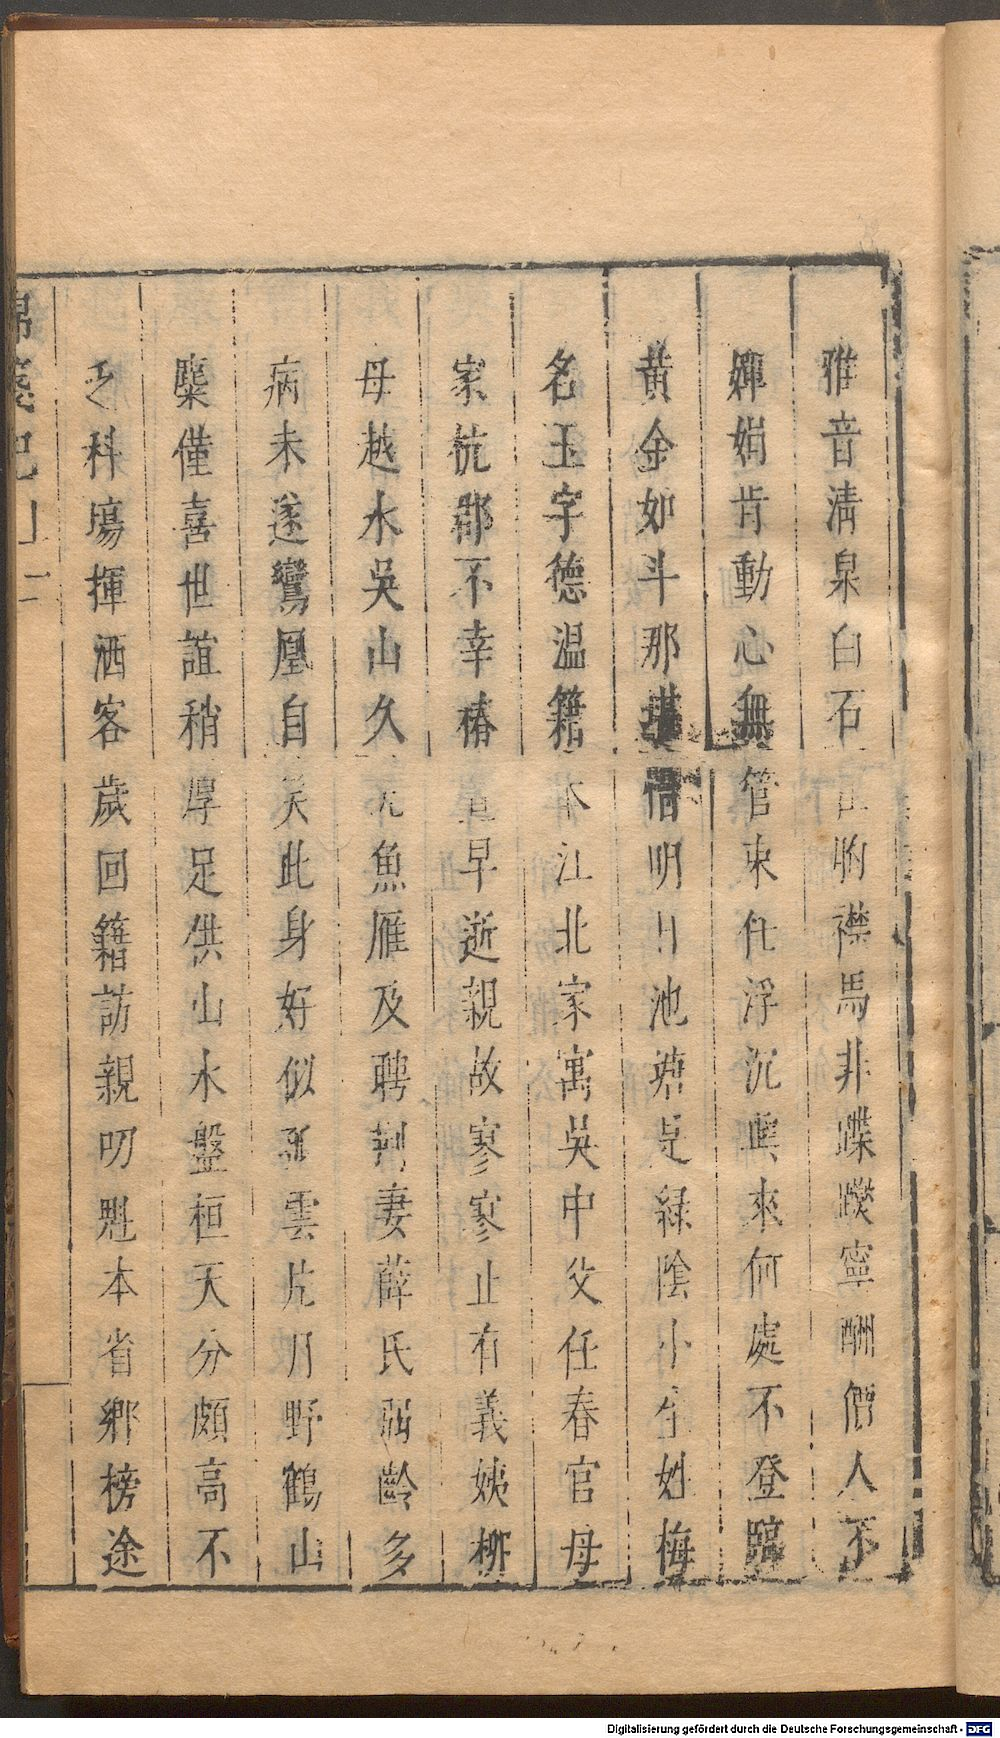 雅音清泉白石 盟襟馬非蹀蹀寧酬價人不
嬋娟肯動心無管束任浮沉興來何處不登臨
黃金如斗那堪惜明日池塘是綠陰小生姓梅
名玉字德溫籍本江北家寓吳中父任春官母
家杭郡不幸椿萱早逝親故寥寥止有義姨柳
母越水吳山久無魚雁及聘荆妻薛氏弱齡多
病未遂鸞凰自矢此身好似孤雲片月野鶴山
麋僅喜世誼稍厚足供山水盤桓天分頗高不
乏科場揮洒客歲回籍訪親叨魁本省鄉榜途
錦箋記 上 二
Digitalisierung gefördert durch die Deutsche Forschungsgemeinschaft - DFG